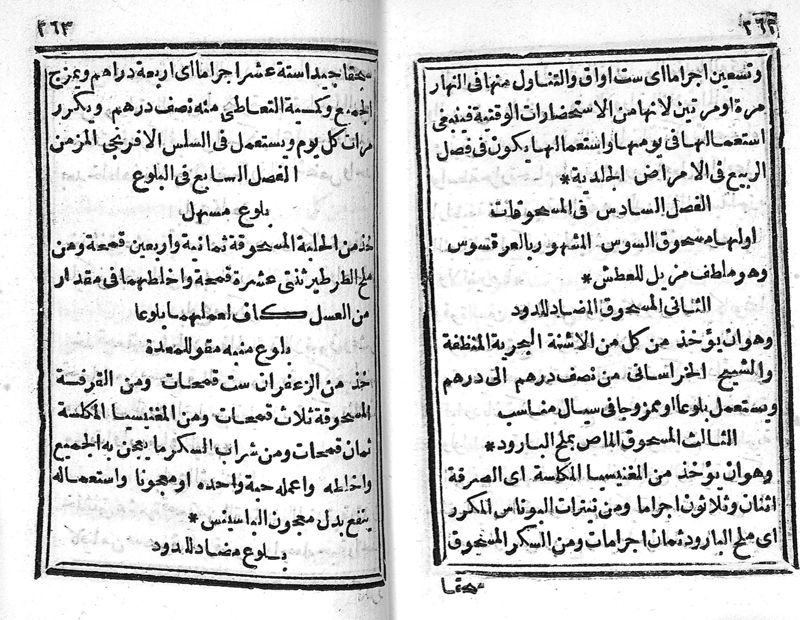 ٣٦٢
وتسعين اجراما اى ست اواق والتناول منها فى النهار
مرة او مرتين لانها من الاستحضارات الوقتية فينبغى
استعمالها فى يومها واستعمالها يكون فى فصل
الربيع فى الامراض الجلدية *
الفصل السادس فى المسحوقات
اولها مسحوق السوس المشهور بالعرقسوس
وهو ملطف مزيل للعطش *
الثانى المسحوق المضاد للدود
وهو ان يؤخذ من كل من الاشنة البحرية المنظفة
والشيح الخراسانى من نصف درهم الى درهم
ويستعمل بلوعا او ممزوجا فى سيال مناسب
الثالث المسحوق الماص بملح البارود *
وهو ان يؤخذ من المغنيسيا المكلسة اى الصرفة
اثنان وثلاثون اجراما ومن نيترات البوتاس المكرر
اى ملح البارود ثمان اجرامات ومن السكر المسحوق
سحقا
٣٦٣
سحقا جيدا ستة عشر اجراما اى اربعة دراهم ويمزج
الجميع وكمية التعاطى منه نصف درهم ويكرر
مرات كل يوم ويستعمل فى السلس الافرنجى المزمن
الفصل السابع فى البلوع
بلوع مسهل
خذ من الحلبة المسحوقة ثمانية واربعين قمحة ومن
ملح الطرطير ثنتى عشرة قمحة واخلطهما فى مقدار
من العسل كاف اعملهما بلوعا
بلوع منبه مقو للمعدة
خذ من الزعفران ست قمحات ومن القرفة
المسحوقة ثلاث قمحات ومن المغنيسيا المكلسة
ثمان قمحات ومن شراب السكر ما يعجن به الجميع
واخلطه واعمله حبة واحده او معجونا واستعماله
ينفع بدل معجون الباسينس *
بلوع مضاد للدود